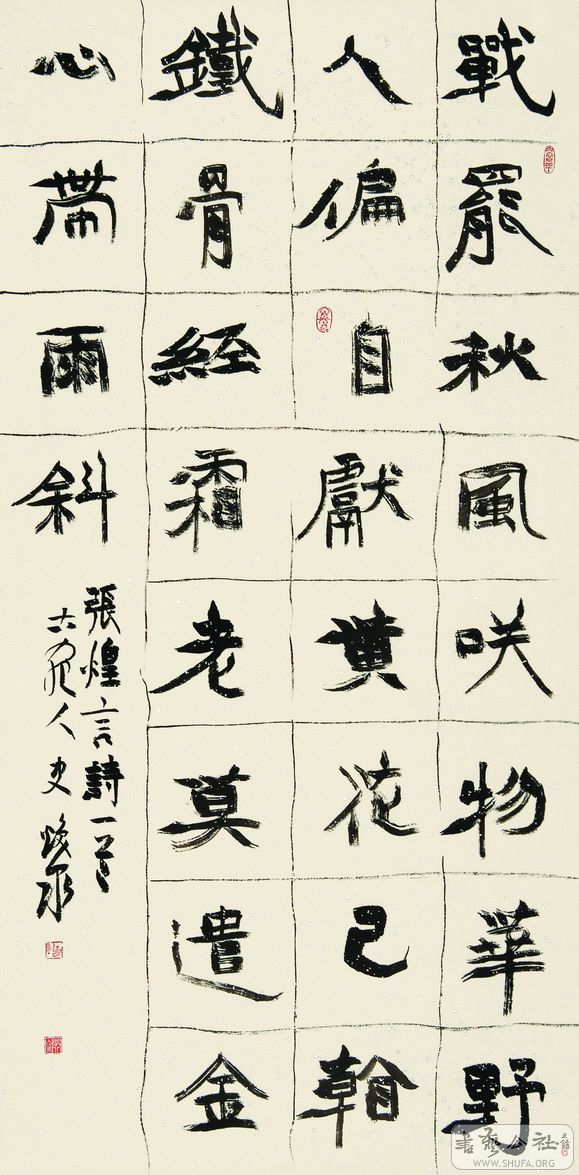 戰罷秋風咲物華野
人偏自獻黃花已看
鐵骨經霜老莫遣金
心帶雨斜
張煌言詩一首
人史
書藝公社
WWW.SHUFA.ORG